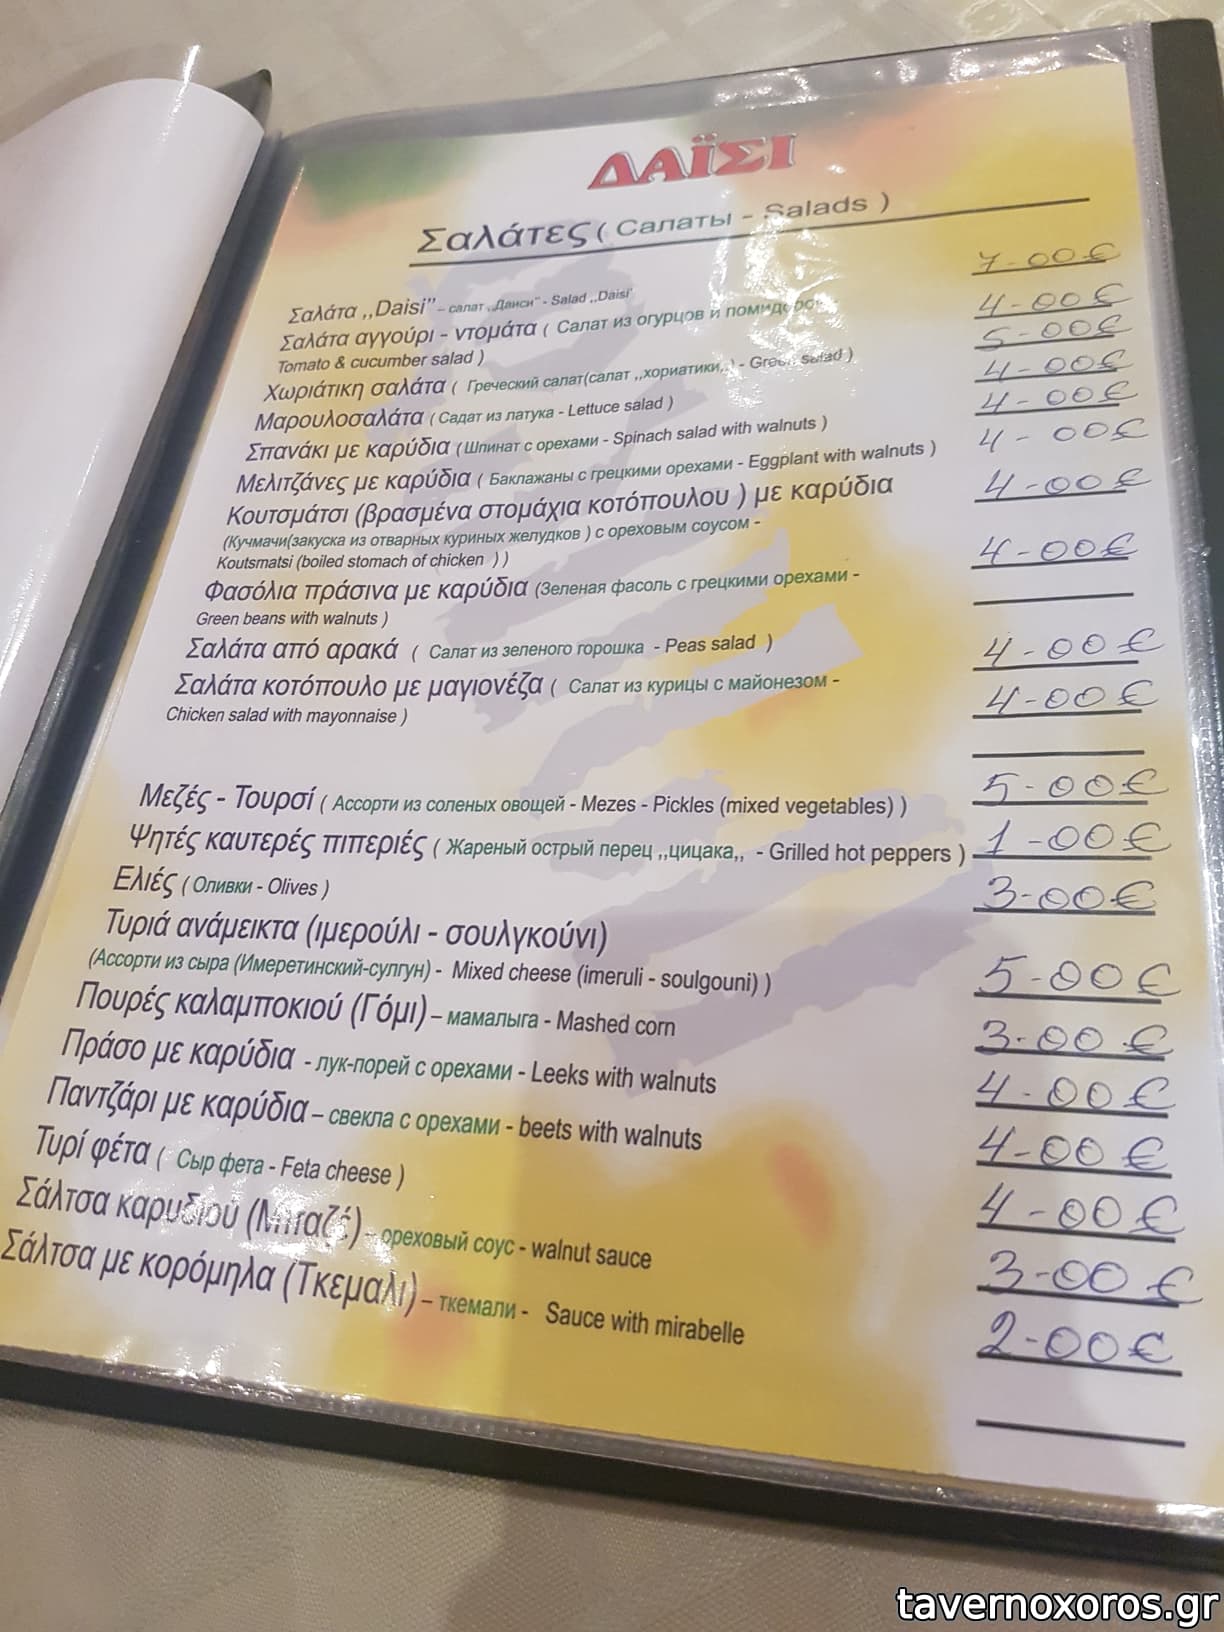 ΔΑΪΣΙ
Σαλάτες ( Салаты - Salads )
Σαλάτα ,,Daisi" – салат ,,Даиси" - Salad ,,Daisi'
7-00€
Σαλάτα αγγούρι - ντομάτα ( Салат из огурцов и
4-00€
Tomato & cucumber salad )
Χωριάτικη σαλάτα ( Греческий салат(салат ,,хориатики,,) - Green salad )
5-00€
Μαρουλοσαλάτα ( Садат из латука - Lettuce salad )
4-00€
Σπανάκι με καρύδια (Шпинат с орехами - Spinach salad with walnuts )
4-00€
Μελιτζάνες με καρύδια ( Баклажаны с грецкими орехами - Eggplant with walnuts )
4-00€
Κουτσμάτσι (βρασμένα στομάχια κοτόπουλου ) με καρύδια
4-00€
(Кучмачи(закуска из отварных куриных желудков ) с ореховым соусом -
Koutsmatsi (boiled stomach of chicken ) )
Φασόλια πράσινα με καρύδια (Зеленая фасоль с грецкими орехами -
4-00€
Green beans with walnuts )
Σαλάτα από αρακά ( Салат из зеленого горошка - Peas salad )
4-00€
Σαλάτα κοτόπουλο με μαγιονέζα ( Салат из курицы с майонезом -
4-00€
Chicken salad with mayonnaise )
Μεζές - Τουρσί ( Ассорти из соленых овощей - Mezes - Pickles (mixed vegetables) )
5-00€
Ψητές καυτερές πιπεριές ( Жареный острый перец ,,цицака,, - Grilled hot peppers )
1-00€
Ελιές ( Оливки - Olives )
3-00€
Τυριά ανάμεικτα (ιμερούλι - σουλγκούνι)
(Ассорти из сыра (Имеретинский-сулгун) - Mixed cheese (imeruli - soulgouni) )
5-00€
Πουρές καλαμποκιού (Γόμι) – мамалыга - Mashed corn
3-00€
Πράσο με καρύδια - лук-порей с орехами - Leeks with walnuts
4-00€
Παντζάρι με καρύδια – свекла с орехами - beets with walnuts
4-00€
Τυρί φέτα ( Сыр фета - Feta cheese )
4-00€
Σάλτσα καρυδιού (Μπαζέ) – ореховый соус - walnut sauce
3-00€
Σάλτσα με κορόμηλα (Τκεμαλι) – ткемали - Sauce with mirabelle
2-00€
tavernoxoros.gr